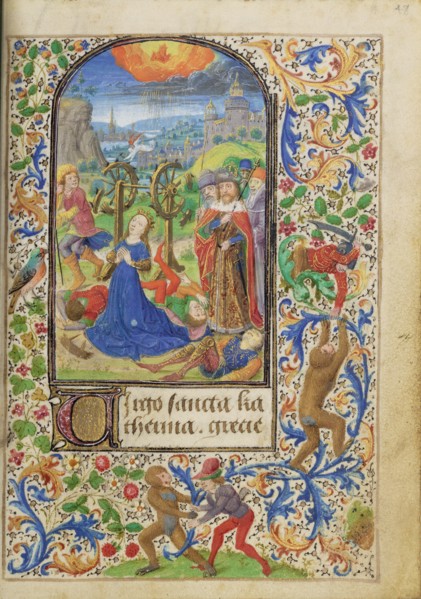 Uirgo sancta ka
therina. grecie